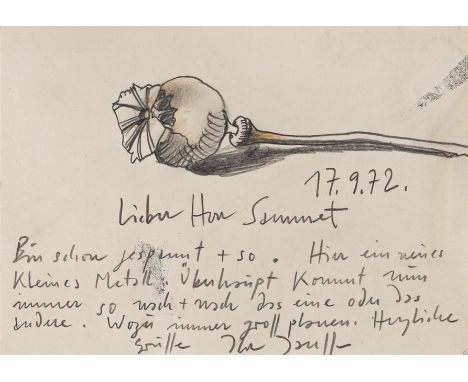 17.9.72.
Lieber Herr Sammet
Bin schon gespannt + so. Hier ein neues
kleines Metall. Überhaupt kommt nun
immer so nach + nach das eine oder das
andere. Wozu immer groß planen. Herzliche
Grüße Ihr Janssen